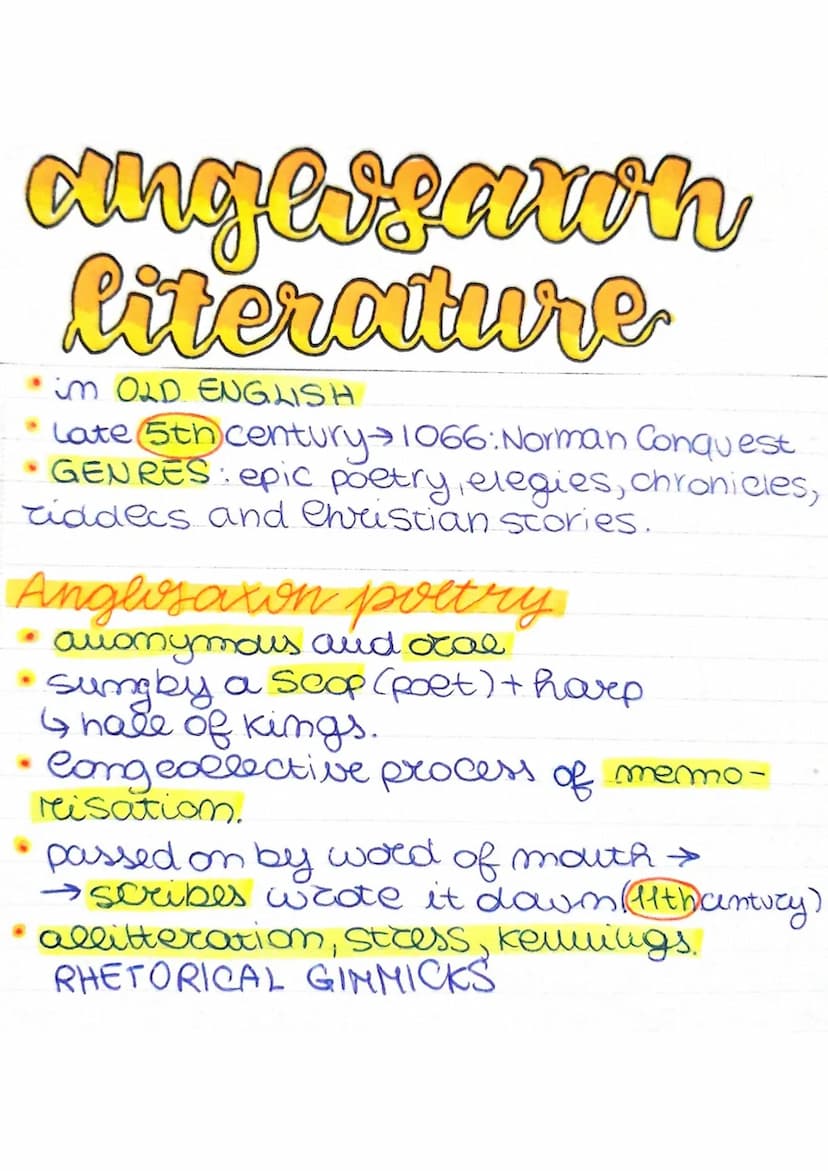 anglosaxon
literature
• in OLD ENGLISH
• late 5th century → 1066: Norman Conquest
• GENRES: epic poetry, elegies, chronicles,
riddecs and Christian stories.
Anglosaxon poetry
• anonymous and oral
• sung by a scop (poet) + harp
↳ hall of kings.
• long collective process of memo-
risation.
• passed on by word of mouth →
→ scribes wrote it down (11th century)
• allitteration, stress, kennings.
RHETORICAL GIMMICKS